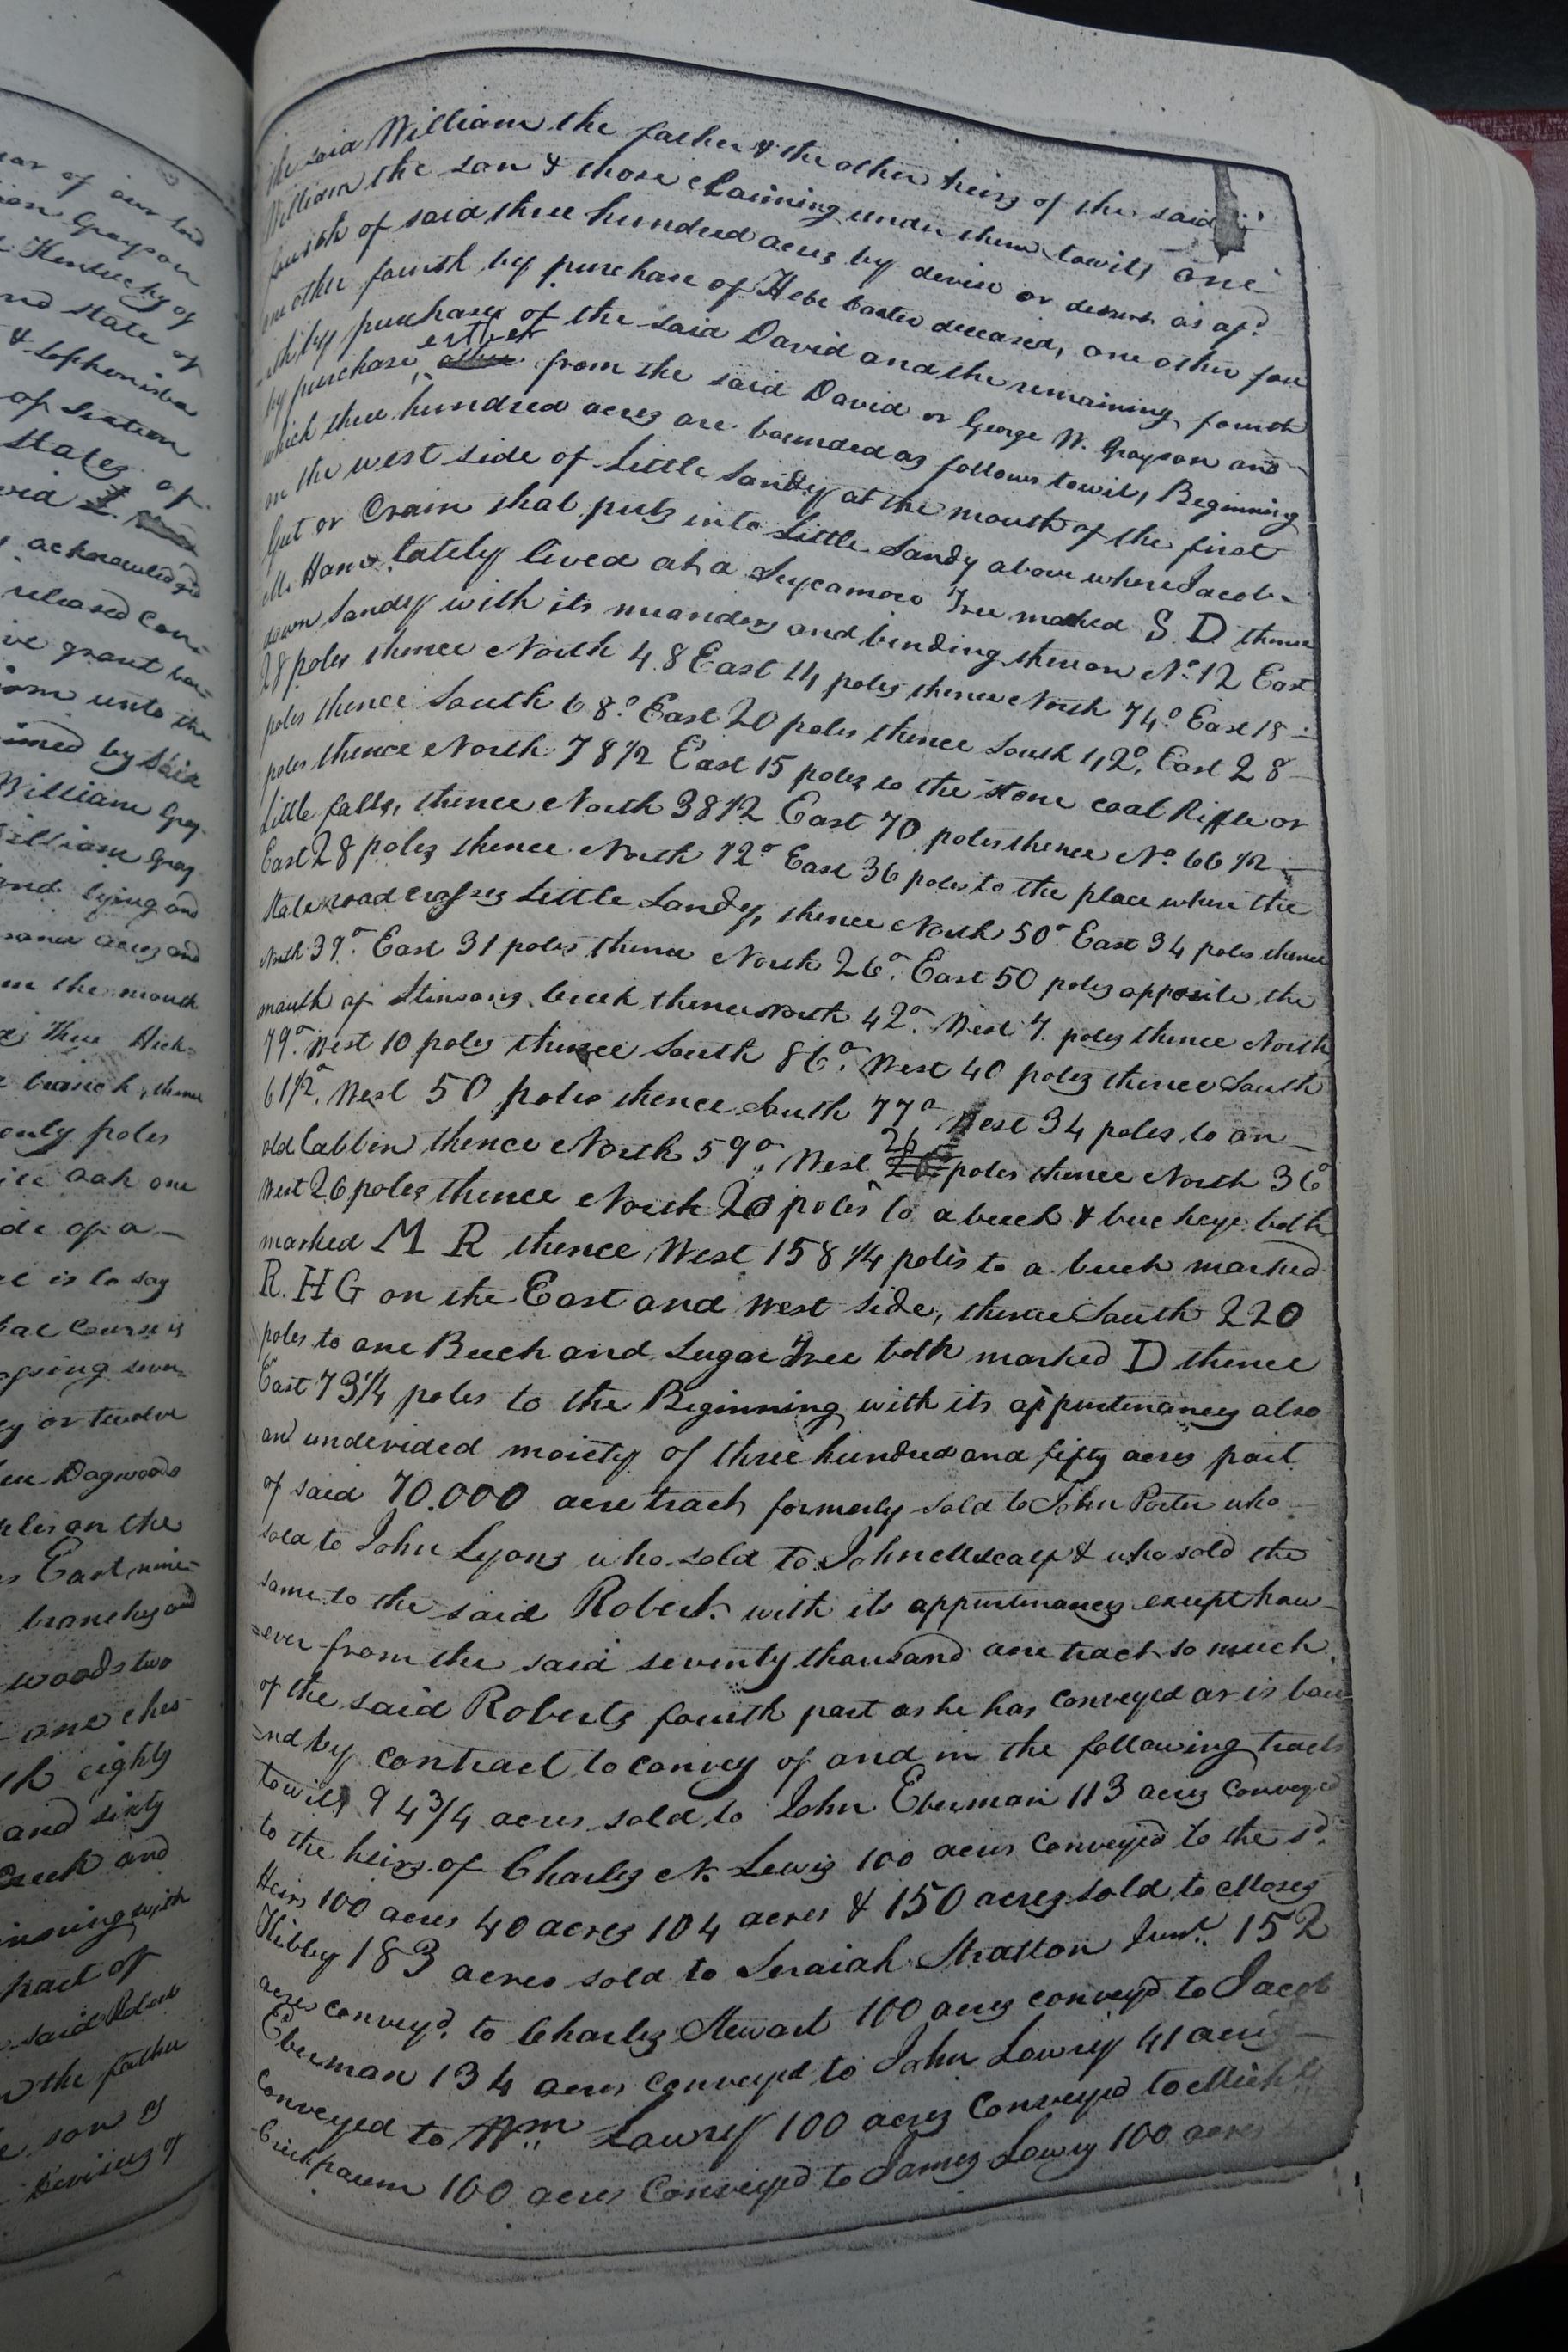 ar of our Lord
Grayson
Kentucky of
nd State of
& Sophonisba
of
States of
acknowledged
released Con-
ive grant bar-
unto the
imed by said
William Gray-
William Gray
and lying and
acres and
on the mouth
Hick-
branch, thence
poles
oak one
ide of a
is to say
Course is
or twelve
Dogwoods
on the
East, nine-
branches and
woods two
one ches-
eighty
and sixty
Creek and
with
tract of
said Robert
the father
son &
Devisees of
the said William the father & the other heirs of the said
William the son & those claiming under them towit, one
fourth of said three hundred acres by devise or descent as afd.
one other fourth by purchase of Hebe Carter deceased, one other fou
rth by purchase of the said David and the remaining fourth
by purchase either from the said David or George W. Grayson and
which three hundred acres are bounded as follows towit, Beginning
on the west side of Little Sandy at the mouth of the first
Gut or Drain that puts into Little Sandy above where Jacob
lately lived at a Sycamore Tree marked S D thence
down Sandy with its meanders and binding thereon No. 12 East
28 poles thence North 48 East 14 poles thence North 74° East 18
poles thence South 68° East 20 poles thence South 42° East 28
poles thence North 78 1/2 East 15 poles to the stone coal Riffle or
Little falls, thence North 38 1/2 East 70 poles thence No. 66 1/2
East 28 poles thence North 72° East 36 poles to the place where the
State road crosses Little Sandy, thence North 50° East 34 poles thence
North 39° East 31 poles thence North 26° East 50 poles opposite the
mouth of Stinsons creek thence North 42° West 7 poles thence North
79° West 10 poles thence South 86° West 40 poles thence South
61 1/2° West 50 poles thence South 77° West 34 poles to an
old Cabbin thence North 59° West 26 poles thence North 36°
West 26 poles thence North 20 poles to a beech & buckeye both
marked M R thence West 158 1/4 poles to a beech marked
R. H G on the East and West side, thence South 220
poles to one Beech and Sugar Tree both marked D thence
East 73 1/4 poles to the Beginning with its appurtenances also
an undivided moiety of three hundred and fifty acres part
of said 70.000 acre tract formerly sold to John Porter who
sold to John Lyons who sold to John Metcalf & who sold the
same to the said Robert with its appurtenances except how-
=ever from the said seventy thousand acre tract so much
of the said Roberts fourth part as he has conveyed or is bou
=nd by contract to convey of and in the following tracts
towit, 94 3/4 acres sold to John Eberman 113 acres conveyed
to the heirs of Charles N. Lewis 100 acres conveyed to the sd.
Heirs 100 acres 40 acres 104 acres & 150 acres sold to Moses
Kibbey 183 acres sold to Seraiah Stratton Junr. 152
acres convey'd. to Charles Stewart 100 acres convey'd to Jacob
Eberman 134 acres conveyed to John Lowry 41 acres
conveyed to Wm Lowry 100 acres Conveyed to Michl
100 acres Conveyed to James Lowry 100 acres